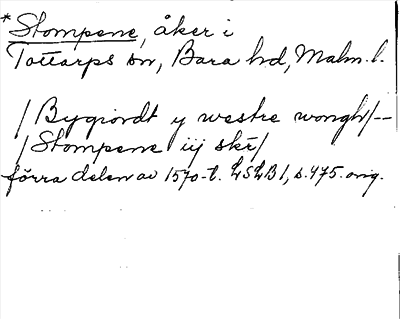 *Stompene, åker i
Tottarps sn, Bara hd, Malm. l.
/Bygiordt y westre wongh/--
/Stompene iij skr/
förra delen av 1570-t. LSLB 1, s. 475. orig.